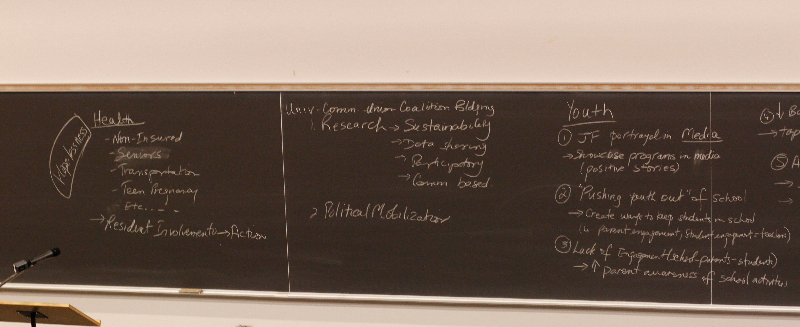 Health
- Non-Insured
- Seniors
- Transportation
- Teen Pregnancy
- Etc.....
→ Resident Involvement → Action
Univ-Comm Union Coalition Bldging
1. Research → Sustainability
→ Data sharing
→ Participatory
→ Comm based
2 Political Mobilization
Youth
① JF portrayed in Media
→ Showcase programs in media
(positive stories)
② "Pushing youth out" of school
→ Create ways to keep students in school
(↓ parent engagement, student engagement + teachers)
③ Lack of Engagement (school-parents-students)
→ ↑ parent awareness of school activities
④ ↓
→
⑤
→
→